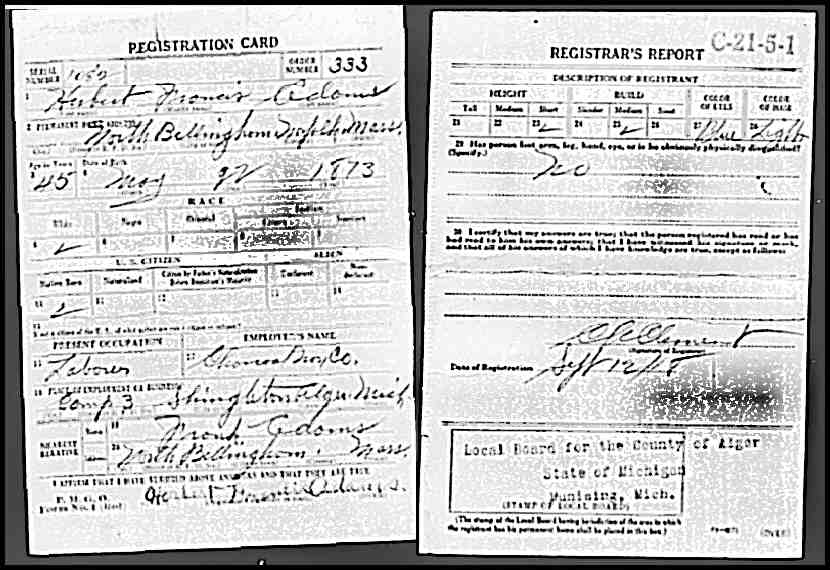 REGISTRATION CARD
SERIAL NUMBER
ORDER NUMBER 333
1 Herbert Francis Adams
2 PERMANENT HOME ADDRESS
North Bellingham Norfolk Mass.
Age in Years Date of Birth
3 45 4 May 1873
RACE
White Negro Oriental Indian
Citizen
5 6 7 8 9
U. S. CITIZEN ALIEN
Native Born Naturalized Citizen by Father's Naturalization Before Registrant's Majority Declarant Non-declarant
10 11 12 13 14
15
If not a citizen of the U. S., of what nation are you a citizen or subject?
PRESENT OCCUPATION EMPLOYER'S NAME
Laborer Bros Co.
PLACE OF EMPLOYMENT OR BUSINESS
Camp 3 Shingleton Alger Mich
NEAREST RELATIVE Name 19 Frank Adams
Address 20 North Bellingham Mass.
I AFFIRM THAT I HAVE VERIFIED ABOVE ANSWERS AND THAT THEY ARE TRUE
P. M. G. O.
Form No. 1 (Red) Herbert Francis Adams.
REGISTRAR'S REPORT C-21-5-1
DESCRIPTION OF REGISTRANT
HEIGHT BUILD COLOR OF EYES COLOR OF HAIR
Tall Medium Short Slender Medium Stout
21 22 23 24 25 26 27 Blue 28 Light
29 Has person lost arm, leg, hand, eye, or is he obviously physically disqualified?
(Specify.) No
30 I certify that my answers are true; that the person registered has read or has
had read to him his own answers; that I have witnessed his signature or mark,
and that all of his answers of which I have knowledge are true, except as follows:
Clement
(Signature of Registrar)
Date of Registration Sept 12/18
Local Board for the County of Alger
State of Michigan
Munising, Mich.
(STAMP OF LOCAL BOARD)
(The stamp of the Local Board having jurisdiction of the area in which
the registrant has his permanent home shall be placed in this box.)
(OVER)